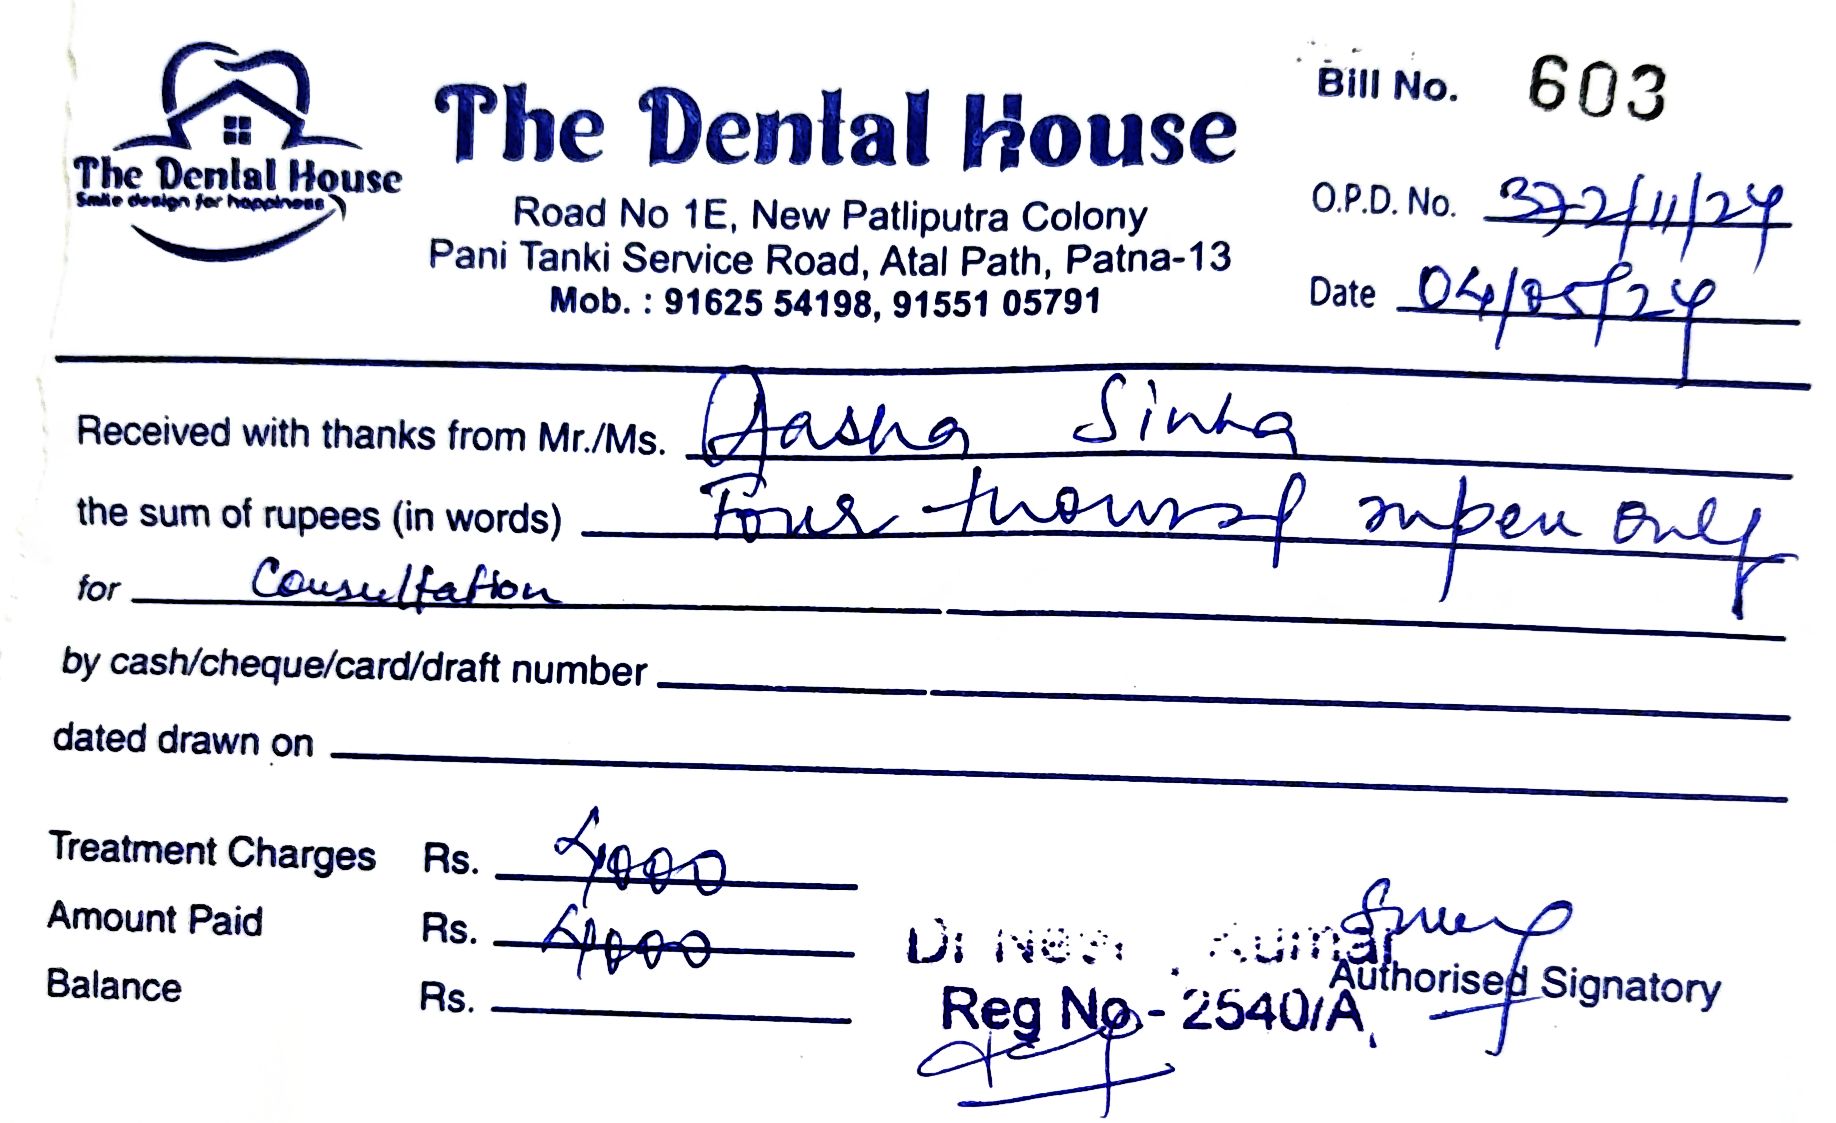 The Dental House
Smile design for happiness
The Dental House
Road No 1E, New Patliputra Colony
Pani Tanki Service Road, Atal Path, Patna-13
Mob. : 91625 54198, 91551 05791
Bill No. 603
O.P.D. No. 372/11/24
Date 04/05/24
Received with thanks from Mr./Ms. Aasha Sinha
the sum of rupees (in words) Four thousand rupees only
for Consultation
by cash/cheque/card/draft number
dated drawn on
Treatment Charges Rs. 4000
Amount Paid Rs. 4000
Balance Rs.
Dr Kumar
Authorised Signatory
Reg No - 2540/A